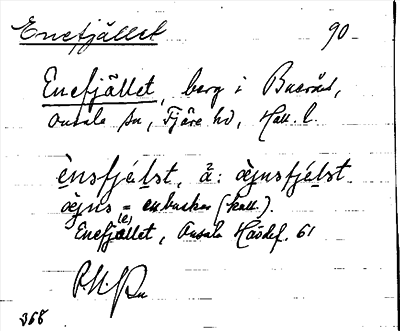 Enefjället 90.
Enefjället, berg i Buerås,
Onsala sn, Fjäre hd, Hall. l.
ènsfjélst, ä: æ̀jnsfjélst.
æjns = enbuskar (koll.).
(e)
Enefjället, Onsala Häskf. 61
368